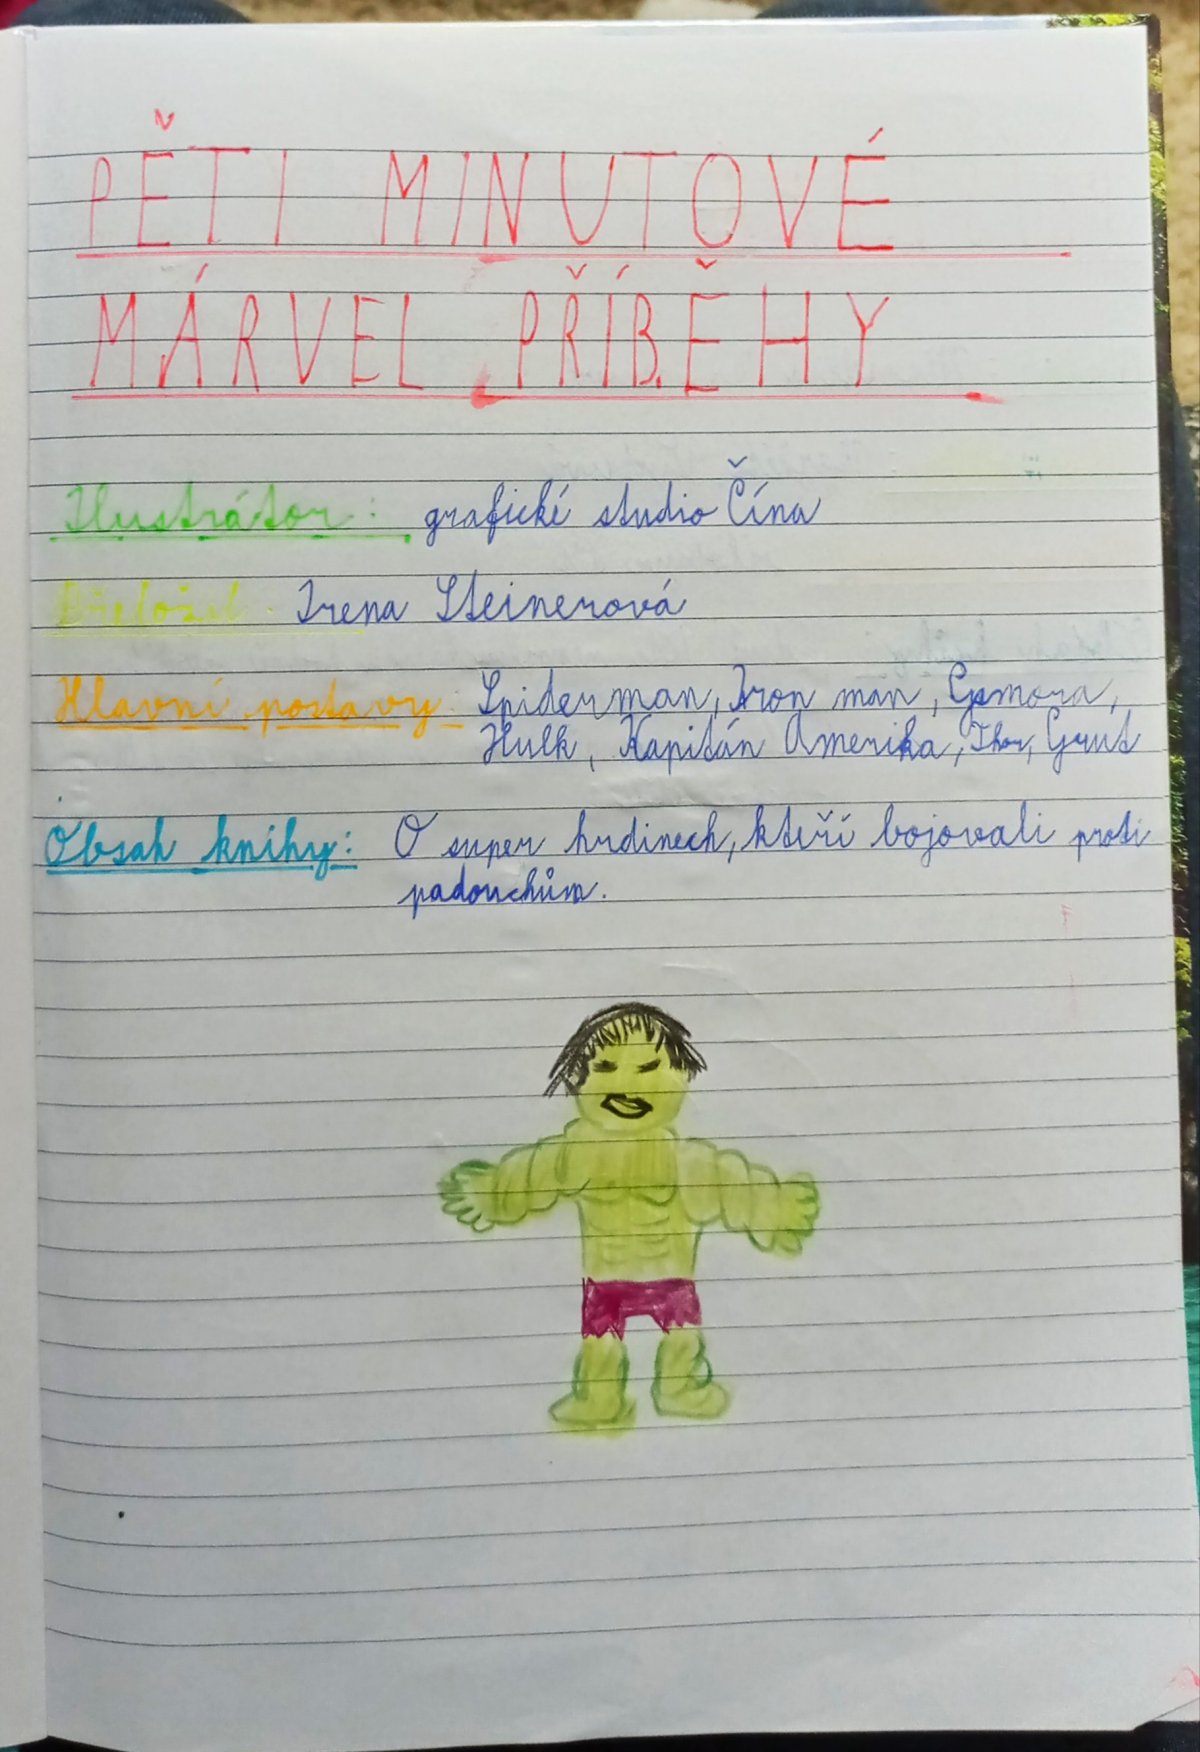 PĚTI MINUTOVÉ
MÁRVEL PŘÍBĚHY
Ilustrátor: grafické studio Čína
Přeložil: Irena Steinerová
Hlavní postavy: Spiderman, Iron man, Gamora,
Hulk, Kapitán Amerika, Thor, Grut
Obsah knihy: O super hrdinech, kteří bojovali proti
padouchům.